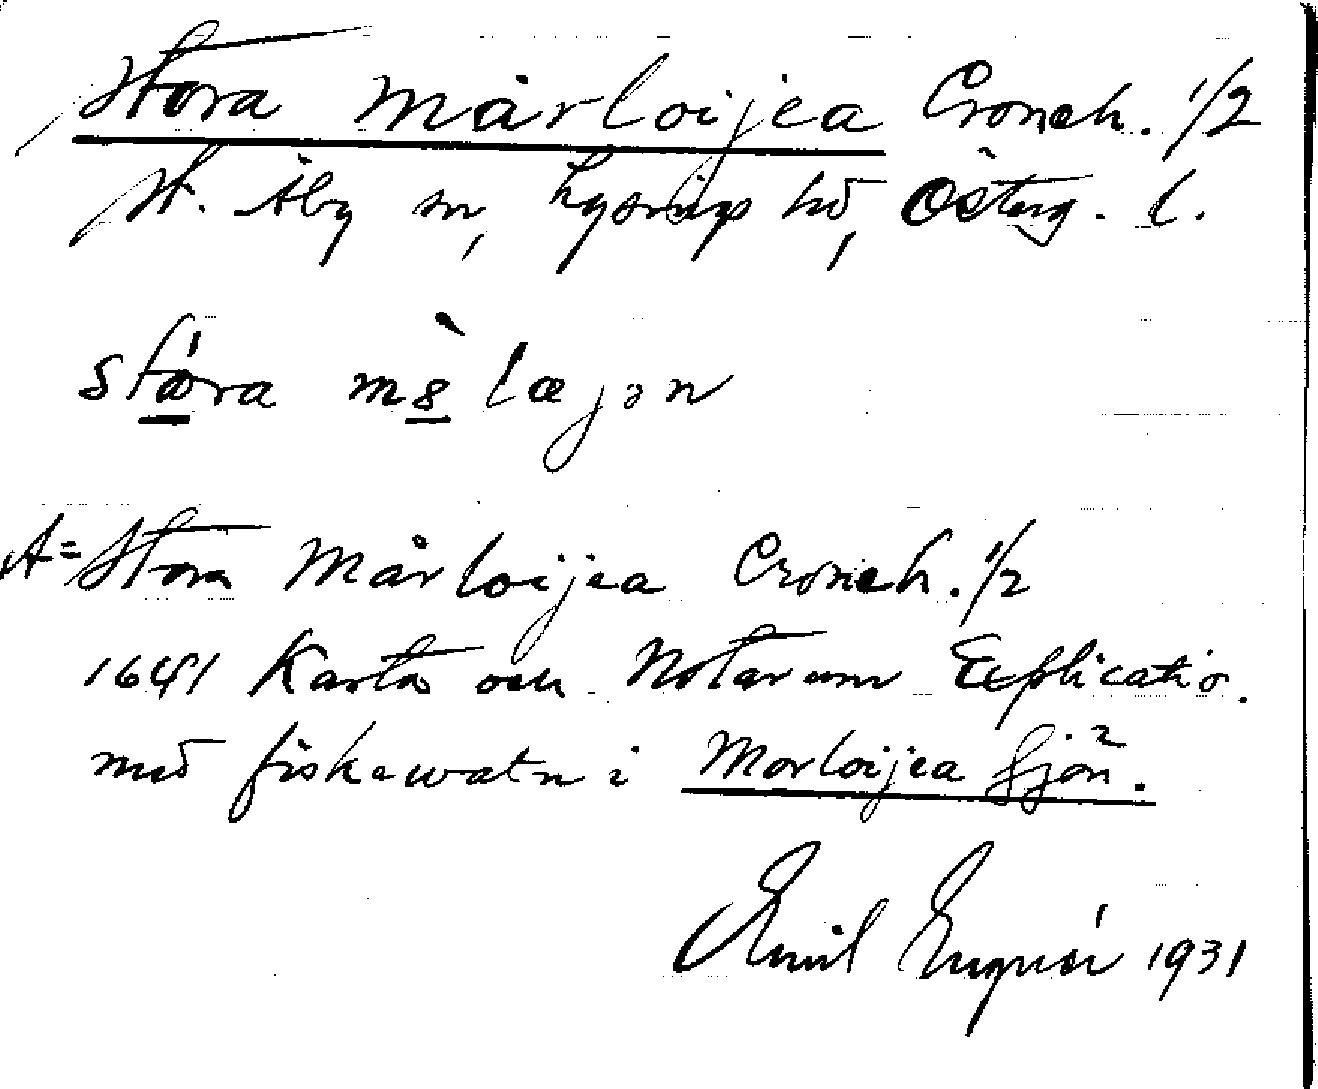 Stora Mårloijea Croneh. 1/2
St. Åby sn, Lysings hd, Österg. l.
stora må̀læjən
A= Stora Mårloijea Croneh. 1/2
1641 Karta och Notarum Explicatio.
med fiskewatn i Morloijea Sjön.
Emil 1931